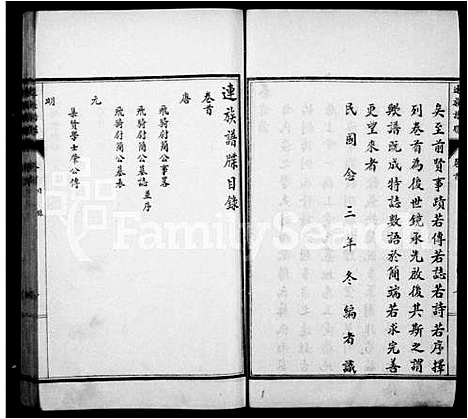 矣至前賢事蹟若傳若誌若詩若序擇
列卷首為後世鏡承先啟後其斯之謂
歟譜既成特誌數語於簡端若求完善
更望來者
民國念三年冬編者識
連族譜牒目錄
卷首
唐
飛騎尉簡公事畧
飛騎尉簡公墓誌並序
飛騎尉簡公墓表
元
集賢學士肇公傳
明
FamilySearch